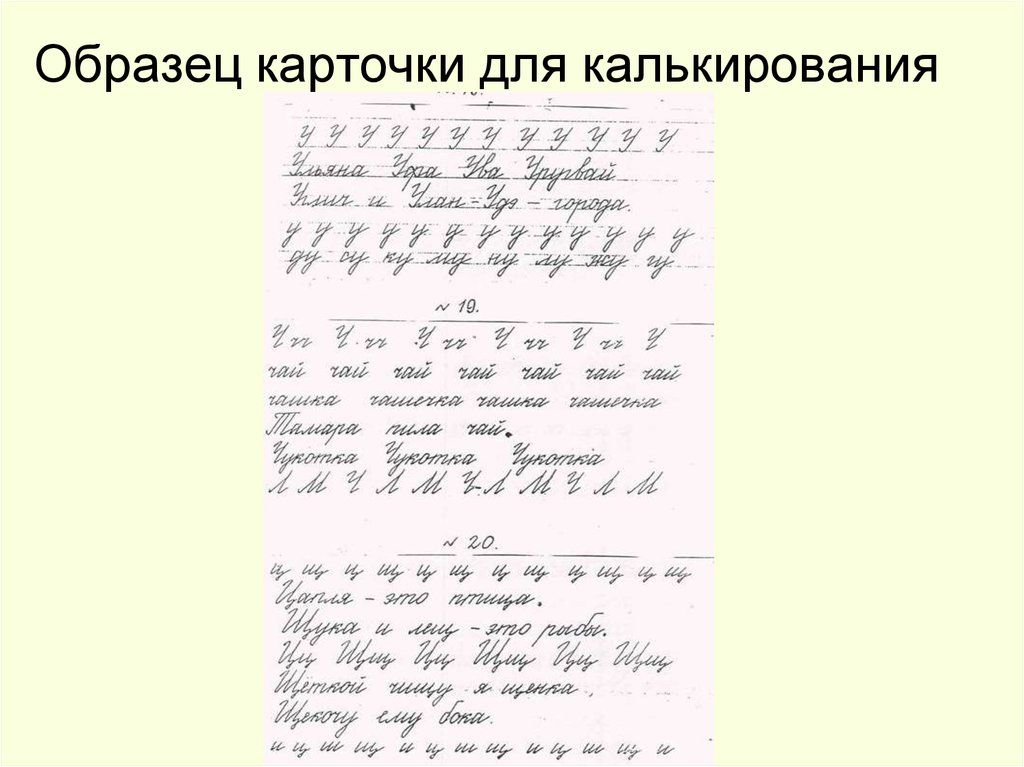 Образец карточки для калькирования
У У У У У У У У У У У У
Ульяна Уфа Ува Уругвай
Углич и Улан-Удэ – города.
у у у у у у у у у у у у у
ду су ку му ну лу жу гу
~ 19.
Ч чч Ч чч Ч чч Ч чч Ч чч Ч
чай чай чай чай чай чай чай
чашка чашечка чашка чашечка
Тамара пила чай.
Чукотка Чукотка Чукотка
Л М Ч Л М Ч Л М Ч Л М
~ 20.
ц щ ц щ ц щ ц щ ц щ ц щ
Цапля – это птица.
Щука и лещ – это рыбы.
Цц Щщ Цц Щщ Цц Щщ
Щёткой чищу я щенка,
Щекочу ему бока.
и ц ш щ и ц ш щ и ц ш щ и